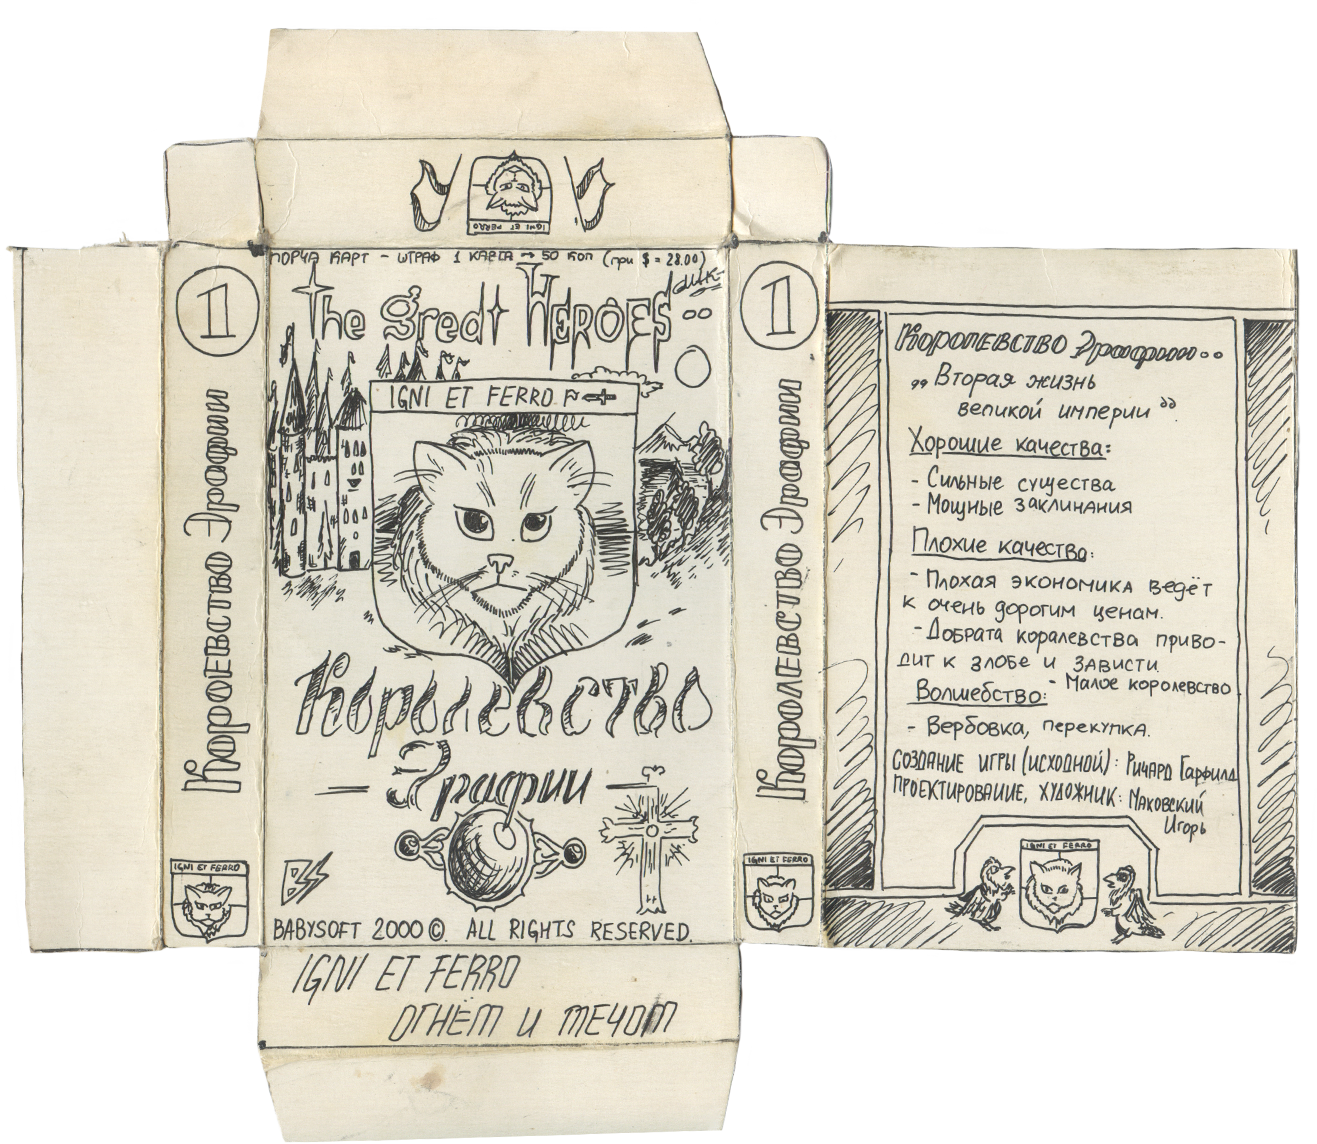 IGNI ET FERRO
ПОРЧА КАРТ – ШТРАФ 1 КАРТА → 50 КОП (при $ = 28.00)
The great HEROES
IGNI ET FERRO
Королевство
Эрафии
BABYSOFT 2000 ©. ALL RIGHTS RESERVED.
IGNI ET FERRO
ОГНЁМ И МЕЧОМ
1
Короевство Эрафии
IGNI ET FERRO
1
Королевство Эрафии
IGNI ET FERRO
Королевство Эрафии..
„Вторая жизнь
великой империи”.
Хорошие качества:
- Сильные существа
- Мощные заклинания
Плохие качества:
- Плохая экономика ведёт
к очень дорогим ценам.
- Добрата коралевства приво-
дит к злобе и зависти
- Малое королевство
Волшебство:
- Вербовка, перекупка.
СОЗДАНИЕ ИГРЫ (ИСХОДНОЙ): Ричард Гарфилд
ПРОЕКТИРОВАНИЕ, ХУДОЖНИК: Маковский
Игорь
IGNI ET FERRO